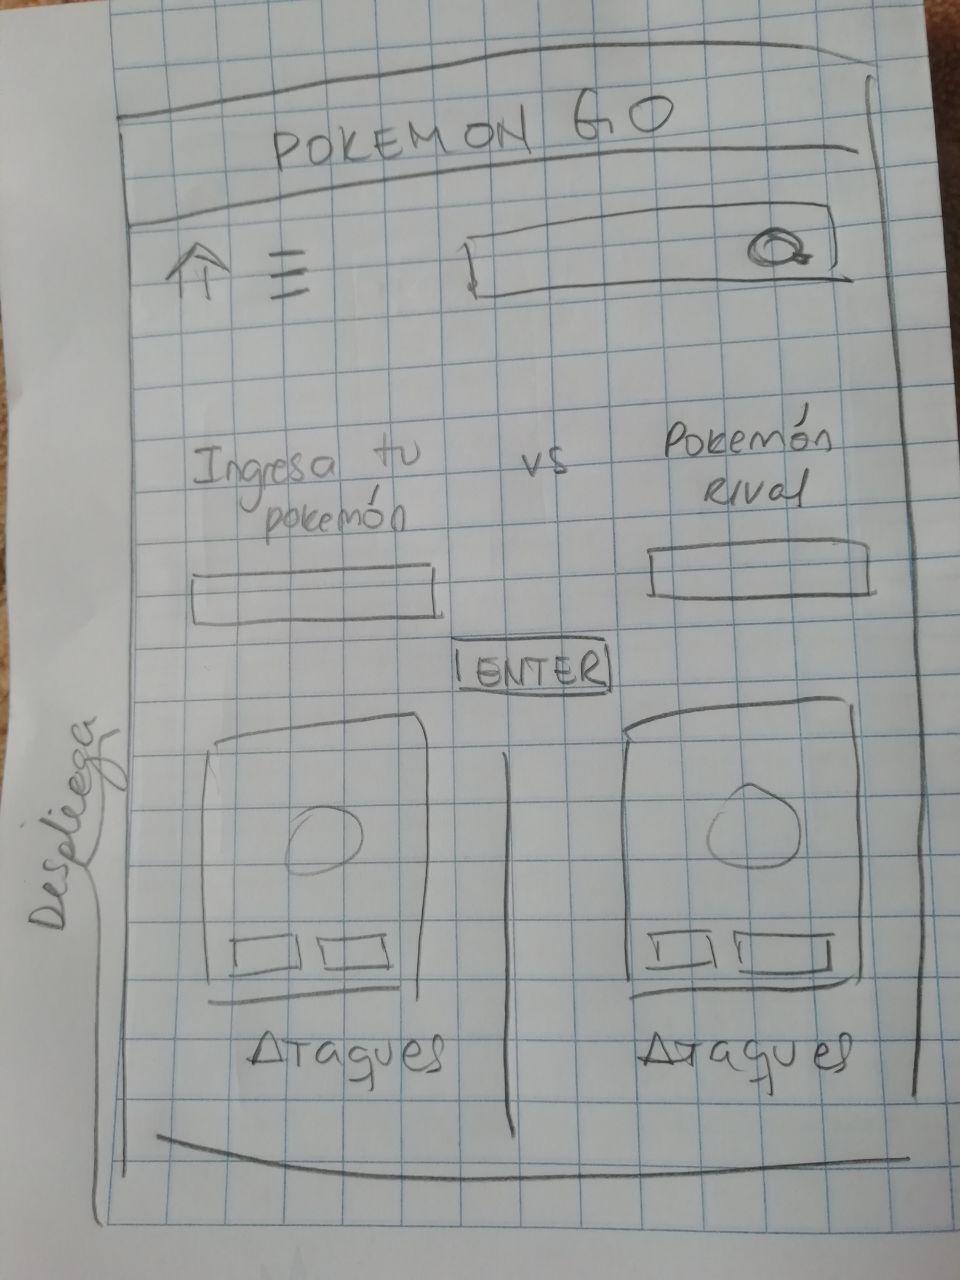 POKEMON GO
Ingresa tu
pokemón
vs
Pokemón
Rival
ENTER
Despliega
Ataques
Ataques